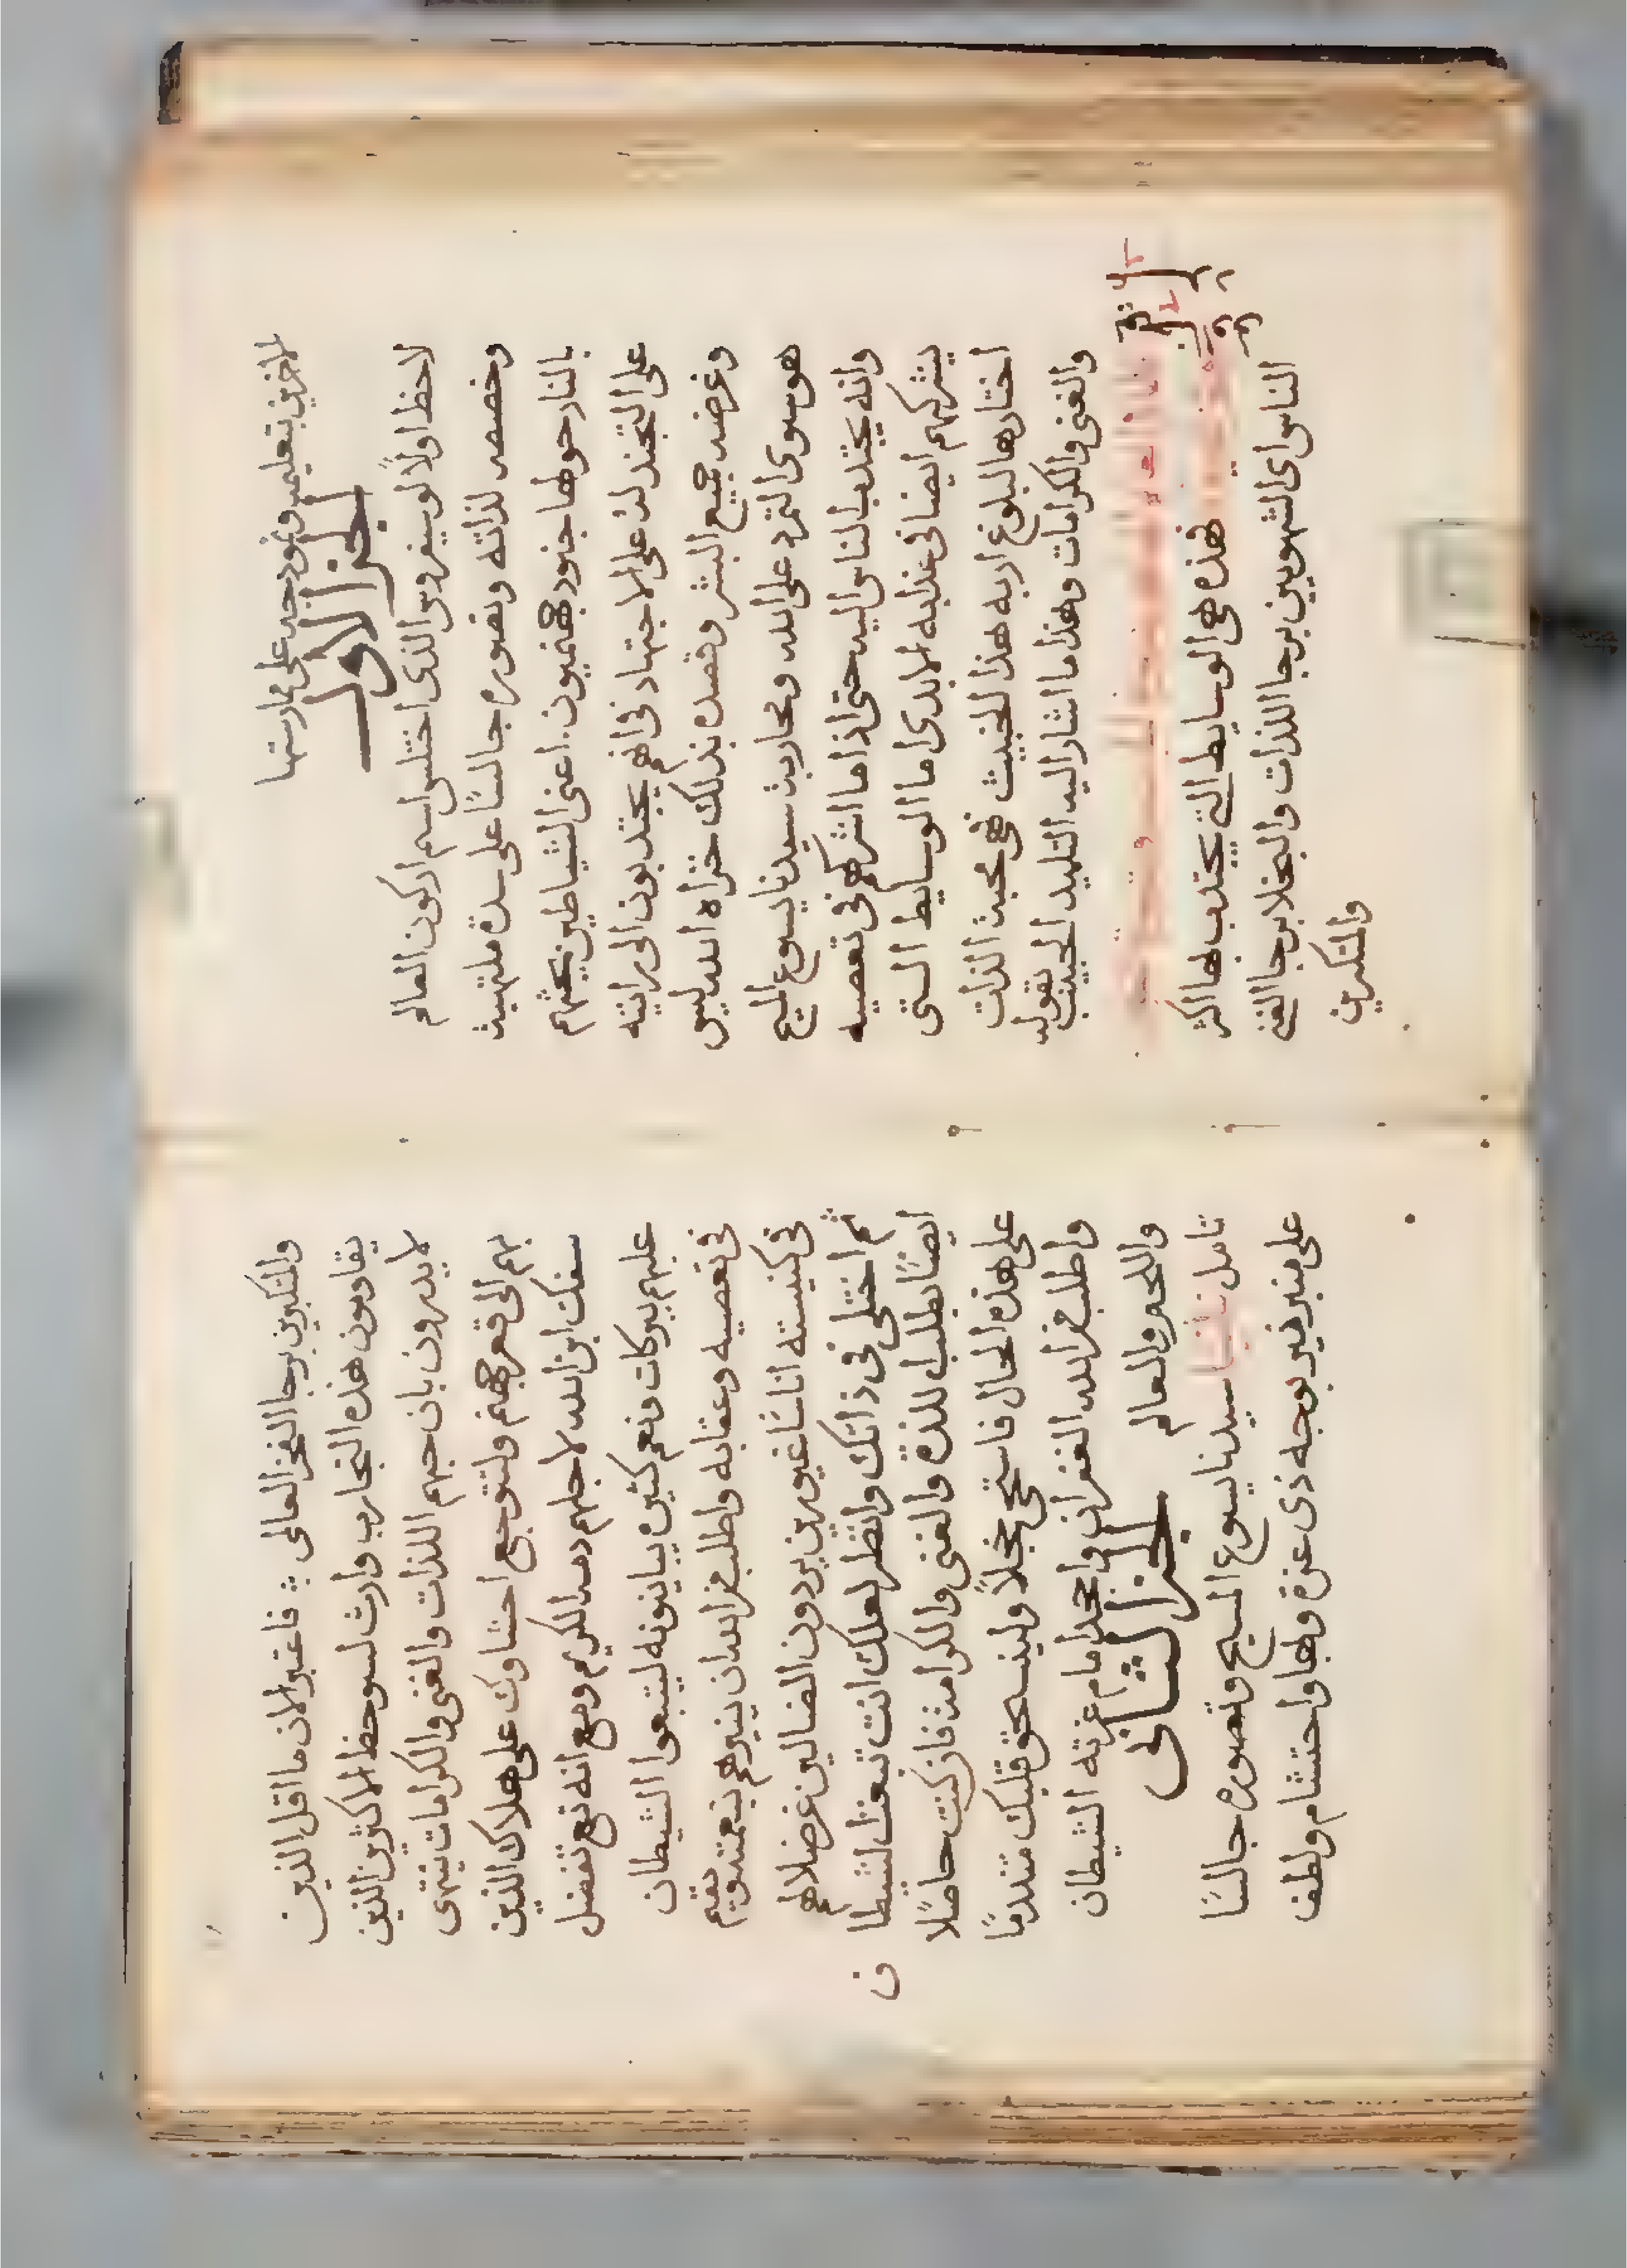 للاخرين بتعليمه ونموذجه على ممارستها
الجزء الاول
لاحظ اولًا لوسيفروس الذى اختلس اسم اركون العالم
وخصصه لذاته وتصوره جالسًا على سدة ملتهبة
بالنار حولها جنود جهنميون. اعنى الشياطين يحثهم
على التجند لهُ على الاجتهاد فى انهم يجتدبون الى رايته
وغرضه جميع البشر وقصده بذلك خزاه الله ليس
هو سوى التمرد على الله ومحاربة سيدنا يسوع المسيح
وانه يجتدب الناس اليه حتى اذا ما اشركهم فى تعصيه
يشركهم ايضا فى عذابه الابدى اما الوسايط التى
اختارها لبلوغ اربه هذا الخبيث فهى محبة الذات
والغنى والكرامات وهذا ما اشار اليه التلميد الحبيب بقوله
فهذه هى الوسايط التى يجتدب بها اكثر
الناس اى الشهويين برجا اللذات والبخلا برجا الغنى
والمتكبرين
والمتكبرين برجا الفخر العالى ؞ فاعتبر الان ما اقل الذين
يقاومون هذه التجارب وارث لسو حظ الاكثرين الذين
لا يدرون بان حبهم اللذات والغنى والكرامات يتهرى
بهم الى قعر جهنم ولتتوجع احشاوك على هلاك الذين
سفك ابن الله لاجلهم دمه الكريم ومع انه تع تفضل
عليهم ببركات ونعم كثيرة يباينونه ليتبعوا الشيطان
فى تعصيه وعقابه واطلب من الله ان ينيرهم بنعمته ويقيم
فى كنيسته اناسًا غيورين يردون الضالين عن ضلالهم
ثم اختلى فى ذاتك وانظر لعلك انت تبعت الشيطان
ايضًا بطلب اللذة والغنى والكرامة فان كنت حاصلًا
على هذه الحال فاستحى خجلًا ولينسحق قلبك متندمًا
واطلب من الله الغفران واجحد امام عزته الشيطان
واللحم والعالم
الجزء الثانى
تامل ثانيًا سيدنا يسوع المسيح وتصوره جالسًا
على منبر منير بوجه ذى عزة وبها واحتشام ولطف